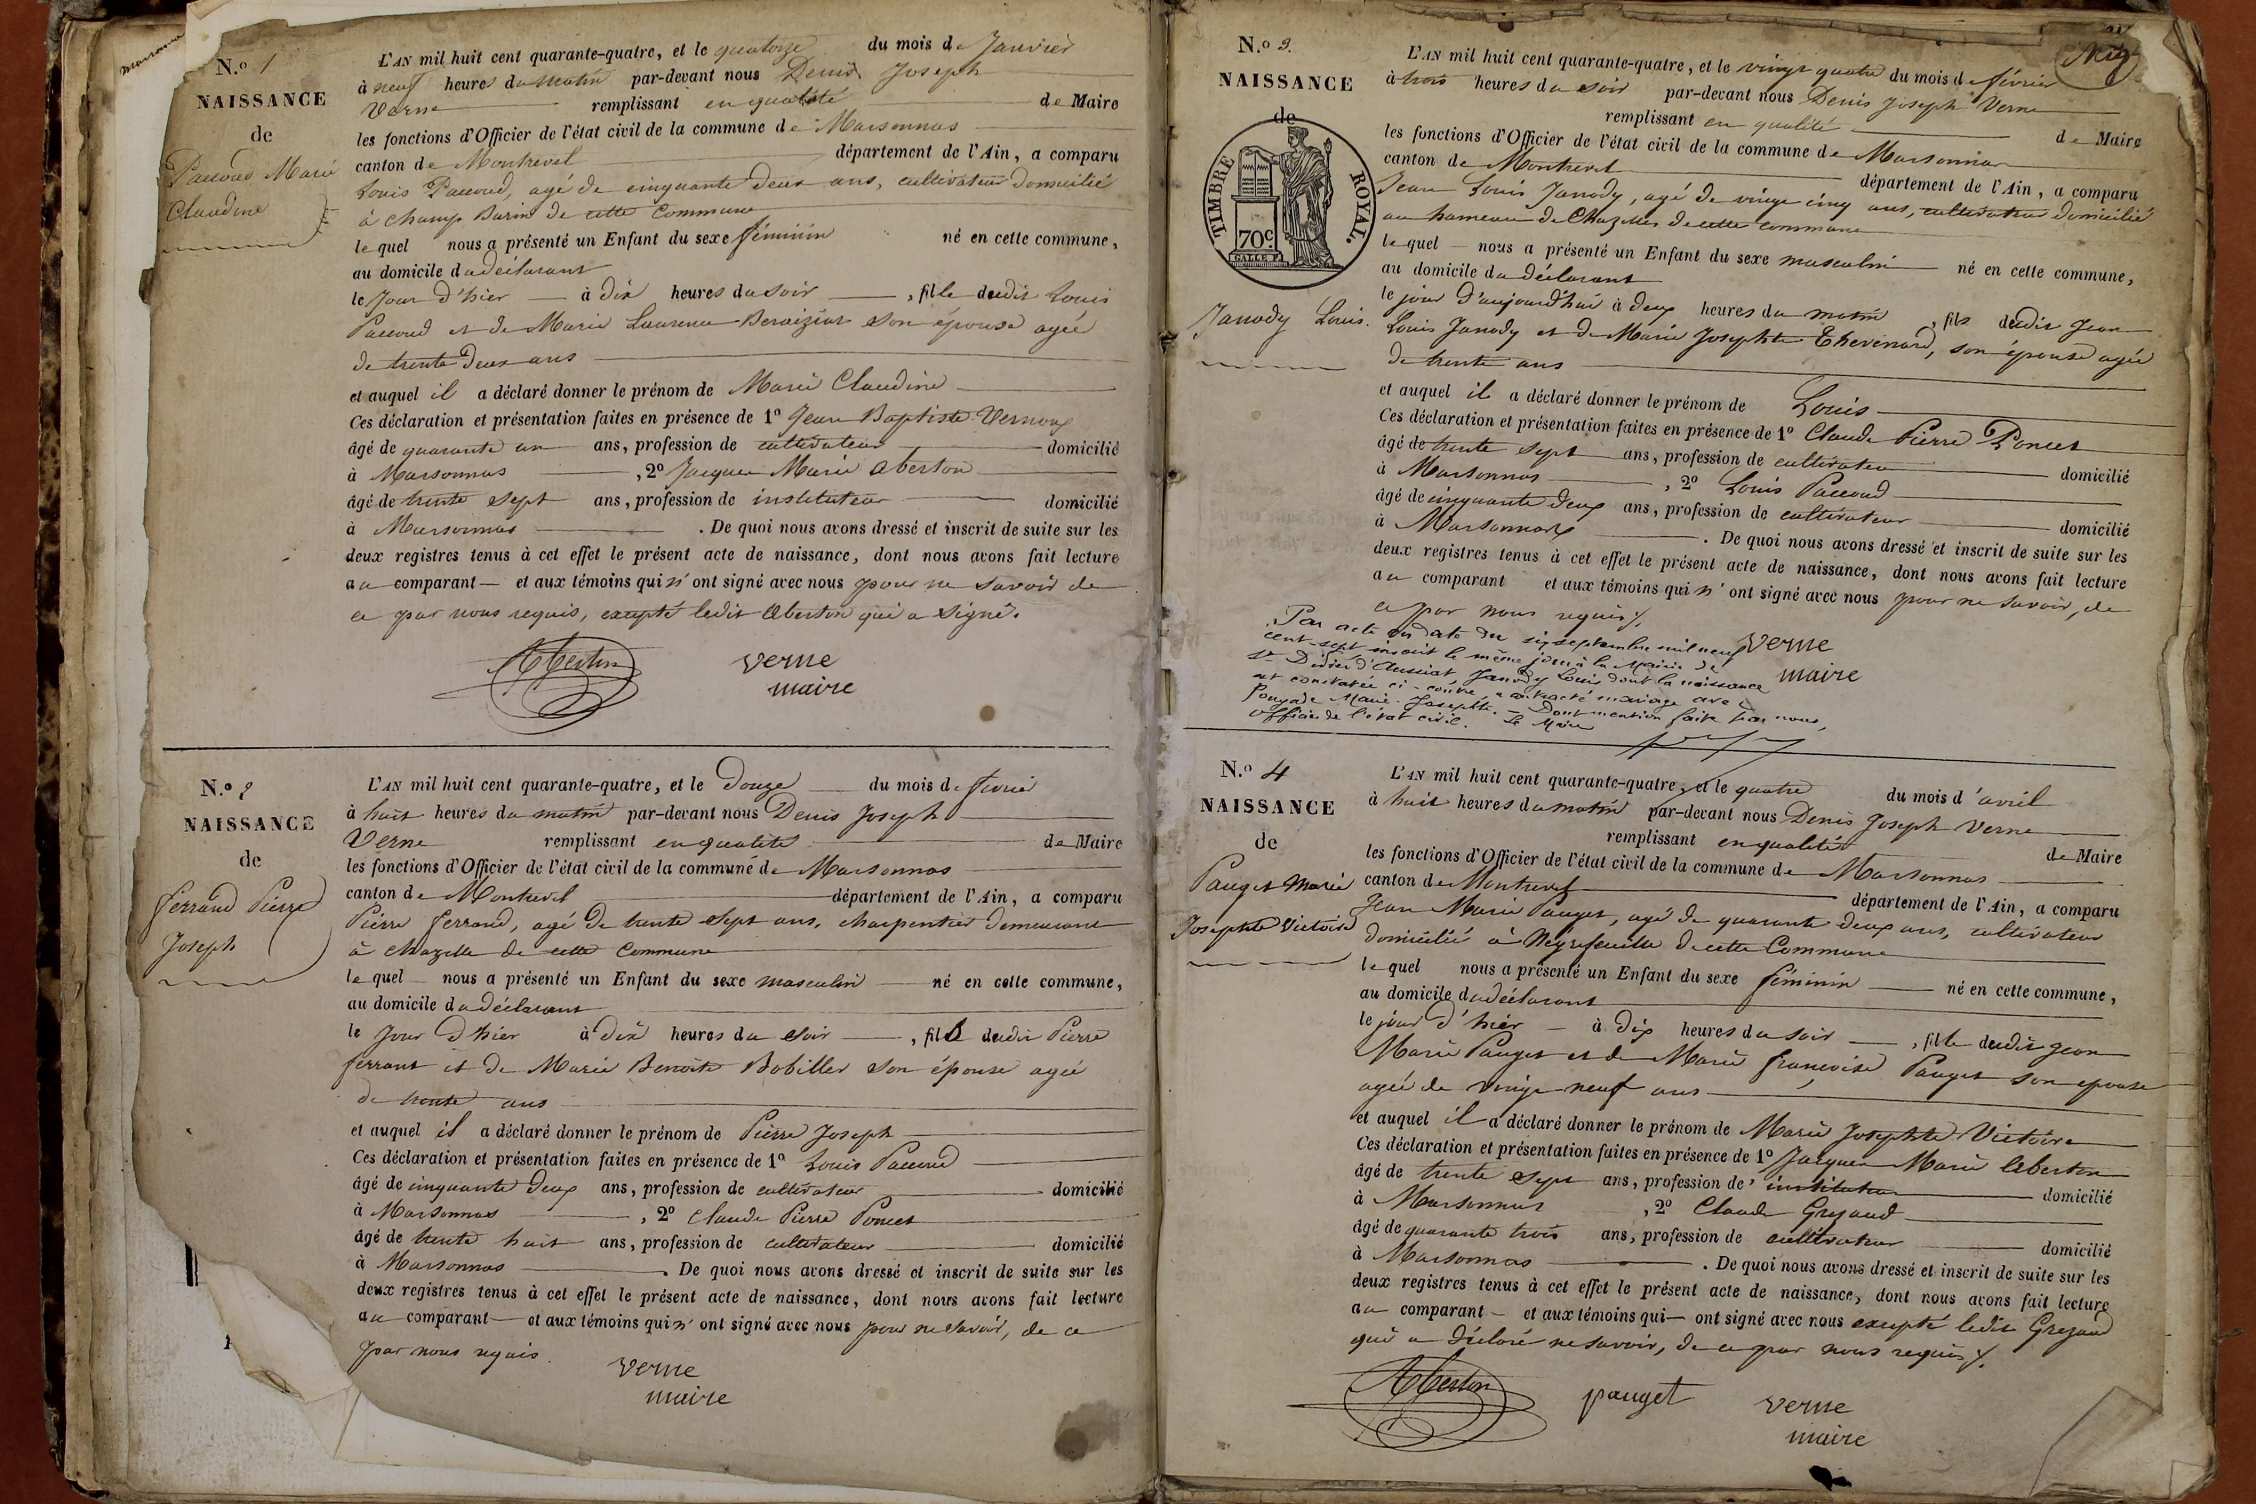 N.o 1
NAISSANCE
de
Paccoud Marie
Claudine
L'AN mil huit cent quarante-quatre, et le quatorze du mois de Janvier
à neuf heures du matin par-devant nous Denis Joseph
Verne remplissant en qualité de Maire
les fonctions d'Officier de l'état civil de la commune de Marsonnas
canton de Montrevel département de l'Ain, a comparu
Louis Paccoud, agé de cinquante deux ans, cultivateur domicilié
à champ Burin de cette Commune
lequel nous a présenté un Enfant du sexe féminin né en cette commune,
au domicile du déclarant
le jour d'hier à dix heures du soir, fille dudit Louis
Paccoud et de Marie Laurence Beraiziat son épouse agée
de trente deux ans
et auquel il a déclaré donner le prénom de Marie Claudine
Ces déclaration et présentation faites en présence de 1o Jean Baptiste Vernoux
âgé de quarante un ans, profession de cultivateur domicilié
à Marsonnas, 2o Jacques Marie Aberton
âgé de trente sept ans, profession de instituteur domicilié
à Marsonnas. De quoi nous avons dressé et inscrit de suite sur les
deux registres tenus à cet effet le présent acte de naissance, dont nous avons fait lecture
au comparant et aux témoins qui n'ont signé avec nous pour ne savoir de
ce par nous requis, excepté ledit Aberton qui a signé.
Aberton verne
maire
N.o 2
NAISSANCE
de
ferrand Pierre
Joseph
L'AN mil huit cent quarante-quatre, et le Douze du mois de fevrier
à huit heures du matin par-devant nous Denis Joseph
Verne remplissant en qualité de Maire
les fonctions d'Officier de l'état civil de la commune de Marsonnas
canton de Montrevel département de l'Ain, a comparu
Pierre ferrand, agé de trente sept ans, charpentier demeurant
à chazelle de cette Commune
lequel nous a présenté un Enfant du sexe masculin né en cette commune,
au domicile du déclarant
le jour d'hier à dix heures du soir, fils dudit Pierre
ferrant et de Marie Benoite Bobillier son épouse agée
de trente ans
et auquel il a déclaré donner le prénom de Pierre Joseph
Ces déclaration et présentation faites en présence de 1o Louis Paccoud
âgé de cinquante deux ans, profession de cultivateur domicilié
à Marsonnas, 2o Claude Pierre Poncet
âgé de trente huit ans, profession de cultivateur domicilié
à Marsonnas. De quoi nous avons dressé et inscrit de suite sur les
deux registres tenus à cet effet le présent acte de naissance, dont nous avons fait lecture
au comparant et aux témoins qui n'ont signé avec nous pour ne savoir, de ce
par nous requis.
verne
maire
N.o 3.
NAISSANCE
de
TIMBRE ROYAL.
70c
Janody Louis.
L'AN mil huit cent quarante-quatre, et le vingt quatre du mois de février
à trois heures du soir par-devant nous Denis Joseph Verne
remplissant en qualité de Maire
les fonctions d'Officier de l'état civil de la commune de Marsonnas
canton de Montrevel département de l'Ain, a comparu
Jean Louis Janody, agé de vingt cinq ans, cultivateur domicilié
au hameau de Chazelles de cette commune
lequel nous a présenté un Enfant du sexe masculin né en cette commune,
au domicile du déclarant
le jour d'aujourd'hui à deux heures du matin, fils dudit Jean
Louis Janody et de Marie Josephte Thevenard, son épouse agée
de trente ans
et auquel il a déclaré donner le prénom de Louis
Ces déclaration et présentation faites en présence de 1o Claude Pierre Poncet
âgé de trente sept ans, profession de cultivateur domicilié
à Marsonnas, 2o Louis Paccoud
âgé de cinquante deux ans, profession de cultivateur domicilié
à Marsonnas. De quoi nous avons dressé et inscrit de suite sur les
deux registres tenus à cet effet le présent acte de naissance, dont nous avons fait lecture
au comparant et aux témoins qui n'ont signé avec nous pour ne savoir, de
ce par nous requis
verne
maire
Par acte en date du six septembre mil neuf
cent sept inscrit le même jour à la Mairie de
St Didier d'Aussiat, Janody Louis dont la naissance
est constatée ci-contre, a contracté mariage avec
Marie Josephte. Dont mention faite par nous,
officier de l'état civil. Le Maire
N.o 4
NAISSANCE
de
Pauget Marie
Josephte Victoire
L'AN mil huit cent quarante-quatre, et le quatre du mois d'avril
à huit heures du matin par-devant nous Denis Joseph Verne
remplissant en qualité de Maire
les fonctions d'Officier de l'état civil de la commune de Marsonnas
canton de Montrevel département de l'Ain, a comparu
Jean Marie Pauget, agé de quarante deux ans, cultivateur
domicilié à Négrefeuille de cette Commune
lequel nous a présenté un Enfant du sexe féminin né en cette commune,
au domicile du déclarant
le jour d'hier à dix heures du soir, fille dudit Jean
Marie Pauget et de Marie françoise Pauget son épouse
agée de vingt neuf ans
et auquel il a déclaré donner le prénom de Marie Josephte Victoire
Ces déclaration et présentation faites en présence de 1o Jacques Marie Aberton
âgé de trente sept ans, profession d'instituteur domicilié
à Marsonnas, 2o Claude Grezaud
âgé de quarante trois ans, profession de cultivateur domicilié
à Marsonnas. De quoi nous avons dressé et inscrit de suite sur les
deux registres tenus à cet effet le présent acte de naissance, dont nous avons fait lecture
au comparant et aux témoins qui ont signé avec nous excepté ledit Grezaud
qui a déclaré ne savoir, de ce par nous requis
Aberton pauget verne
maire